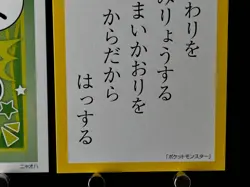 わりを
みりょうする
まいかおりを
からだから
はっする
『ポケットモンスター』